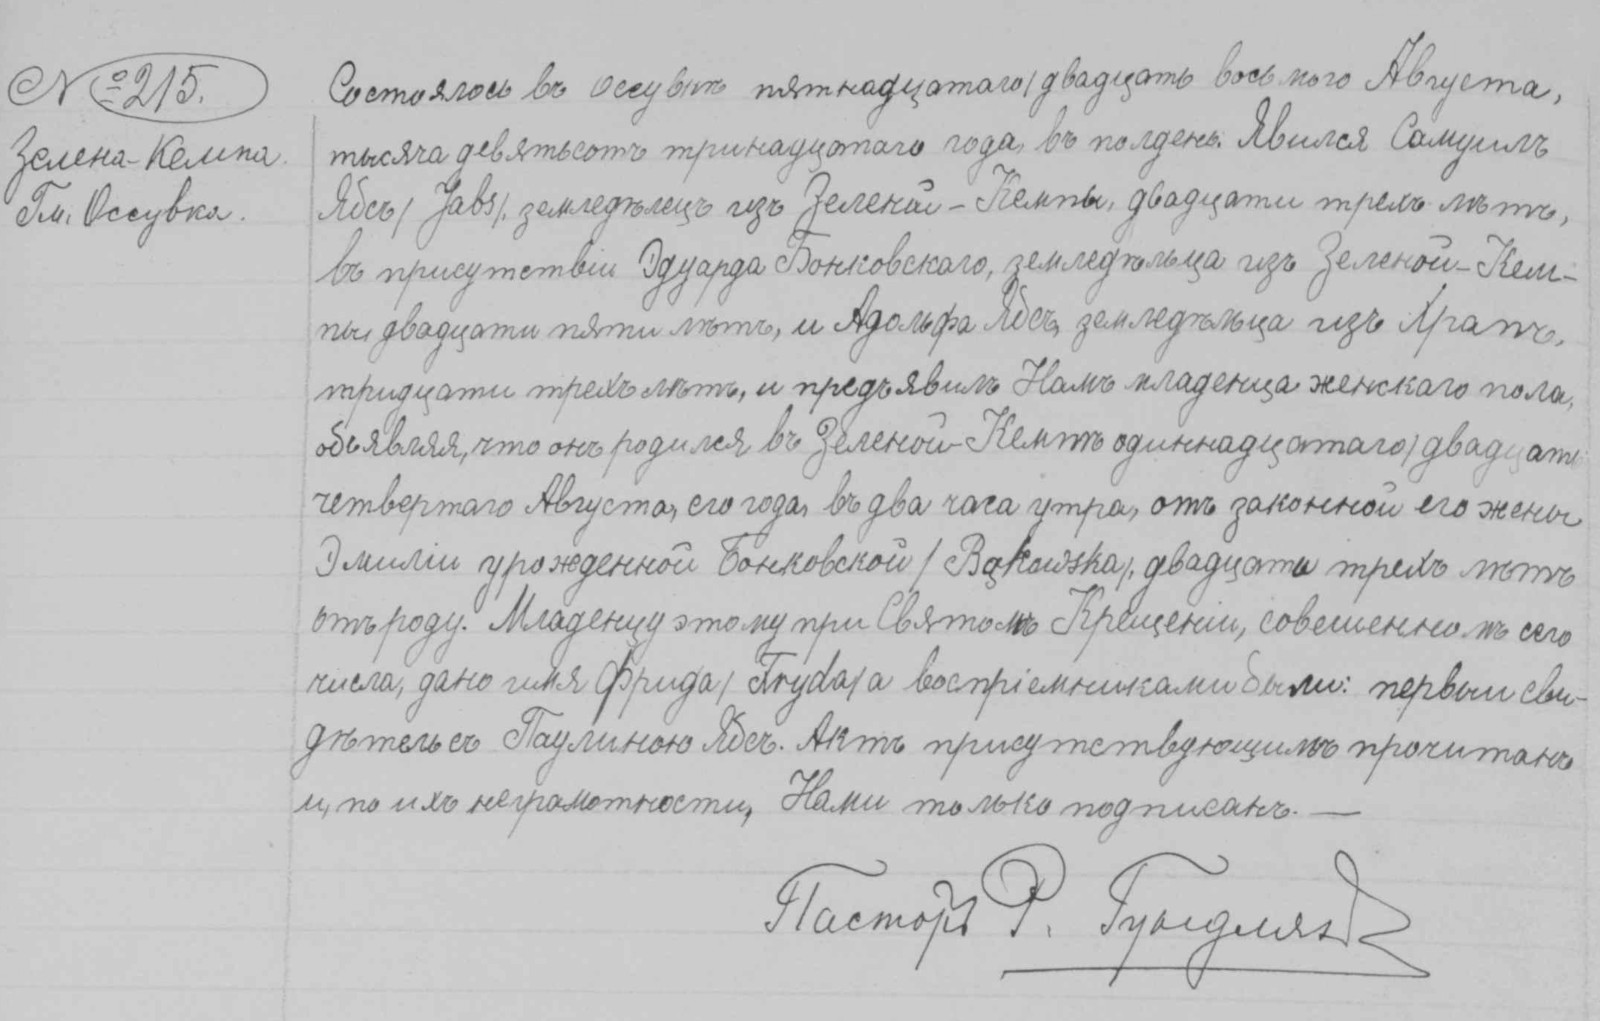 № 215.
Зелена-Кемпа.
Гм. Оссувка.
Состоялось въ Оссувкѣ пятнадцатаго/двадцать восьмого Августа,
тысяча девятьсотъ тринадцатаго года, въ полдень. Явился Самуилъ
Ябсъ /Jabs/, земледѣлецъ изъ Зеленой-Кемпы, двадцати трехъ лѣтъ,
въ присутствіи Эдуарда Бонковскаго, земледѣльца изъ Зеленой-Кем-
пы, двадцати пяти лѣтъ, и Адольфа Ябсъ, земледѣльца изъ
тридцати трехъ лѣтъ, и предъявилъ Намъ младенца женскаго пола,
объявляя, что онъ родился въ Зеленой-Кемпѣ одиннадцатаго/двадцать
четвертаго Августа, сего года, въ два часа утра, отъ законной его жены
Эмиліи урожденной Бонковской /Bąkowska/, двадцати трехъ лѣтъ
отъ роду. Младенцу этому при Святомъ Крещеніи, совешенномъ сего
числа, дано имя Фрида /Fryda/ а воспріемниками были: первый сви-
дѣтель съ Паулиною Ябсъ. Актъ присутствующимъ прочитанъ
и, по ихъ неграмотности, Нами только подписанъ. —
Пасторъ Р. Гундлях